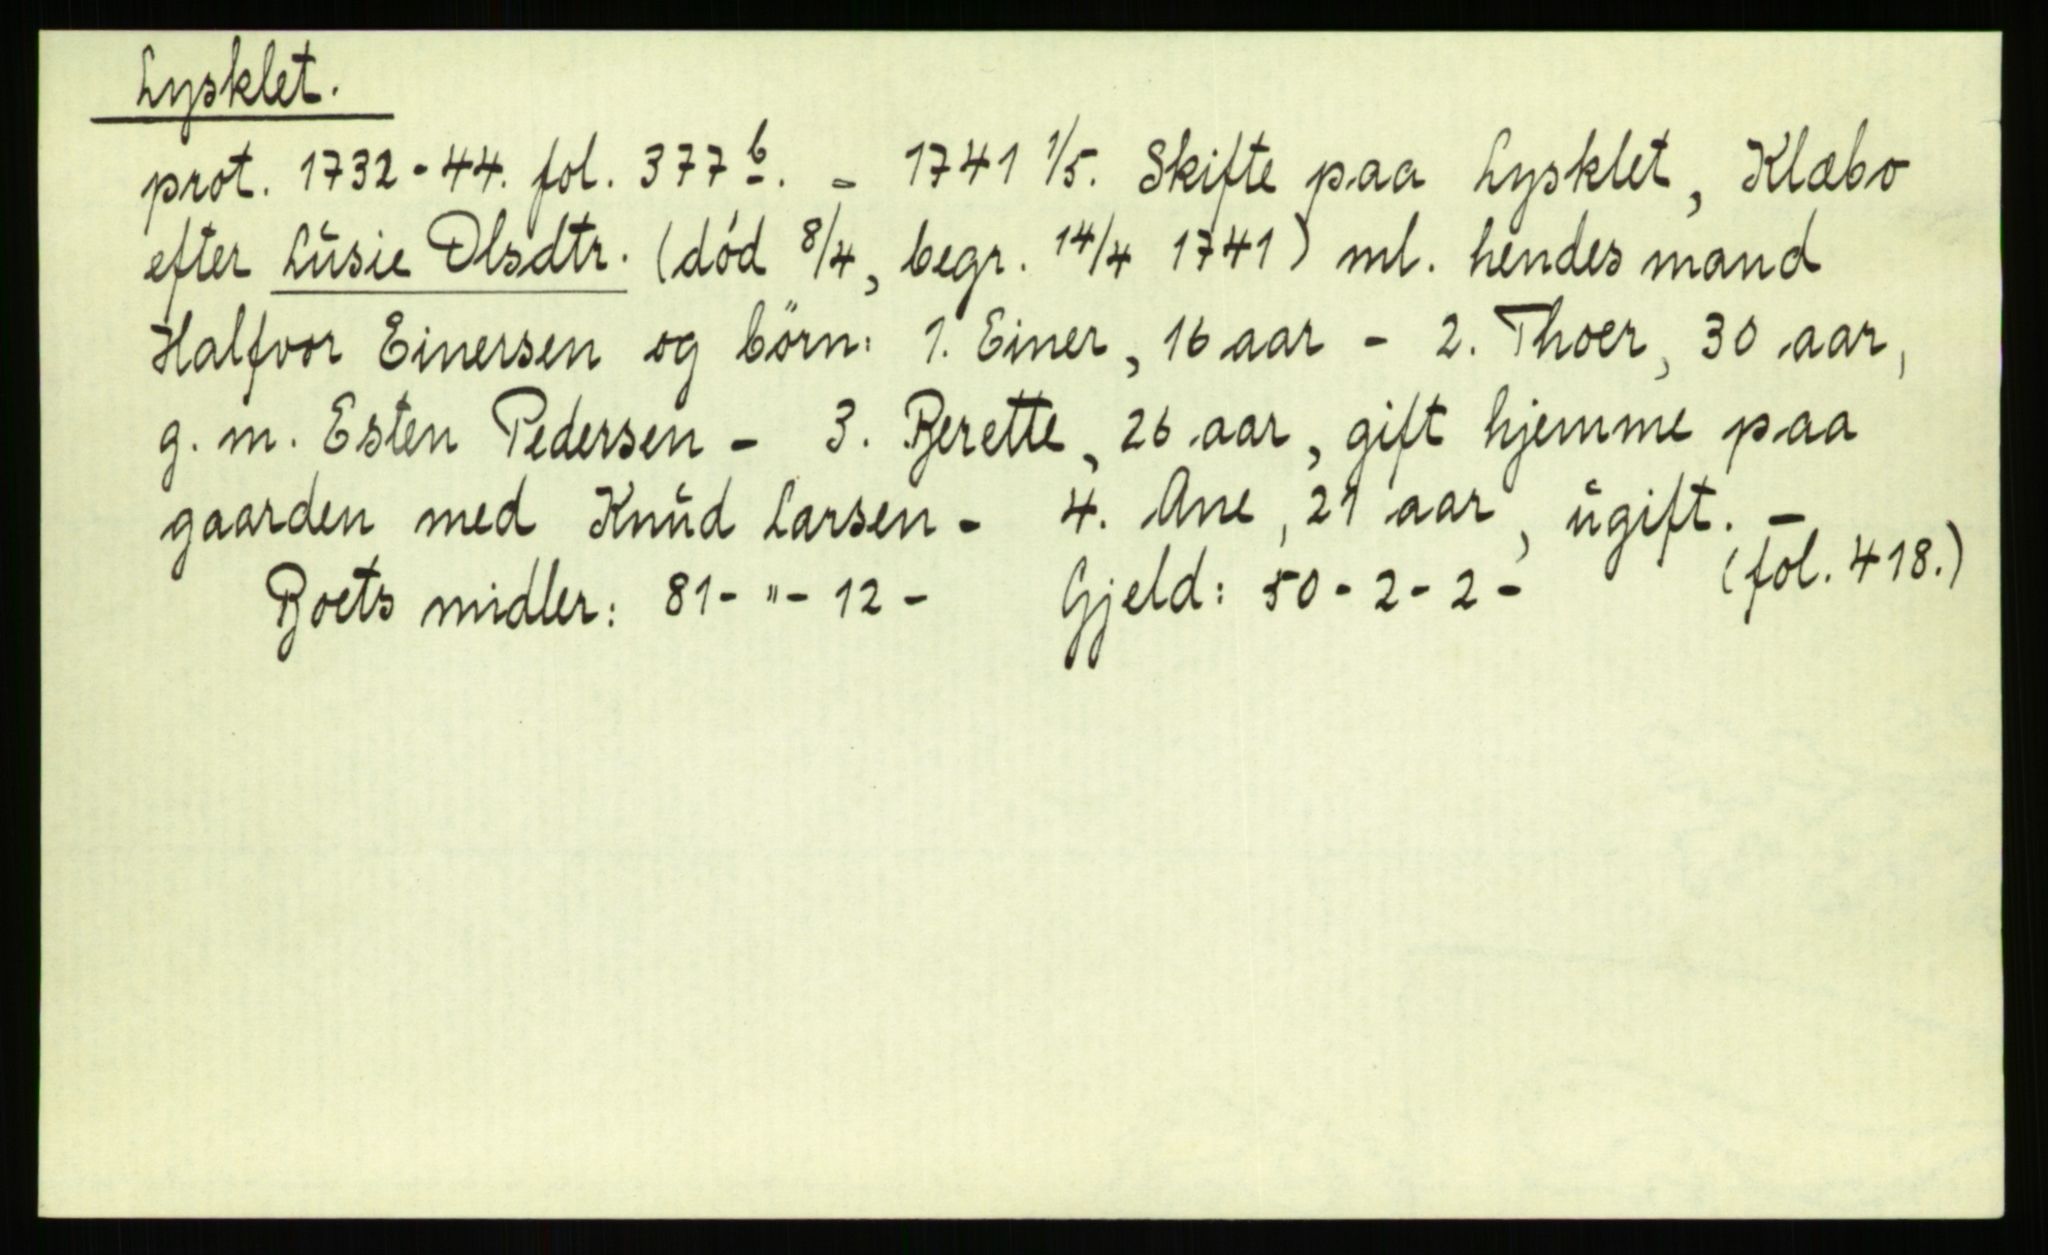 Lysklet.
prot. 1732-44. fol. 377 b. - 1741 1/5. Skifte paa Lysklet, Klæbo
efter Lusie Olsdtr. (död 8/4, begr. 14/4 1741) ml. hendes mand
Halfvor Einersen og börn: 1. Einer, 16 aar - 2. Thoer, 30 aar,
g. m. Esten Pedersen - 3. Berette, 26 aar, gift hjemme paa
gaarden med Knud Larsen - 4. Ane, 21 aar, ugift. -
Boets midler: 81- " - 12 - Gjeld: 50 - 2 - 2 - (fol. 418.)